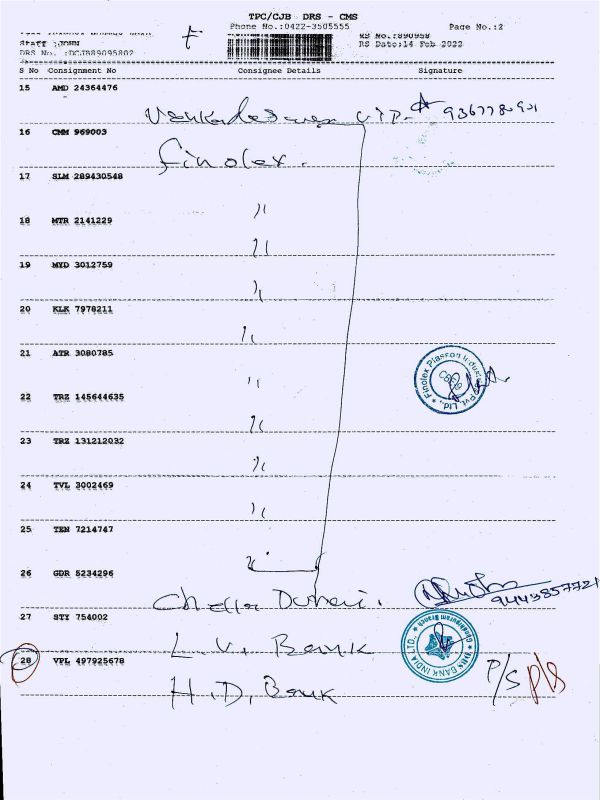 TPC/CJB DRS - CMS
Phone No.:0422-3505555 Page No.:2
Staff :JOHN RS No.:890958
DRS No. :DCJB89095802 RS Date:14 Feb 2022
S No Consignment No Consignee Details Signature
15 AMD 24364476
16 CMM 969003
Finolex.
17 SLM 289430548
"
18 MTR 2141229
"
19 MYD 3012759
"
20 KLK 7978211
"
21 ATR 3080785
"
Finolex Plasson Industries Pvt. Ltd.,
22 TRZ 145644635
"
23 TRZ 131212032
"
24 TVL 3002469
"
25 TEN 7214747
"
26 GDR 5234296
Chella Durai.
9443857721
27 STY 754002
L.V. Bank
DBS BANK INDIA LTD.,
28 VPL 497925678
H.D. Bank
P/S P/S